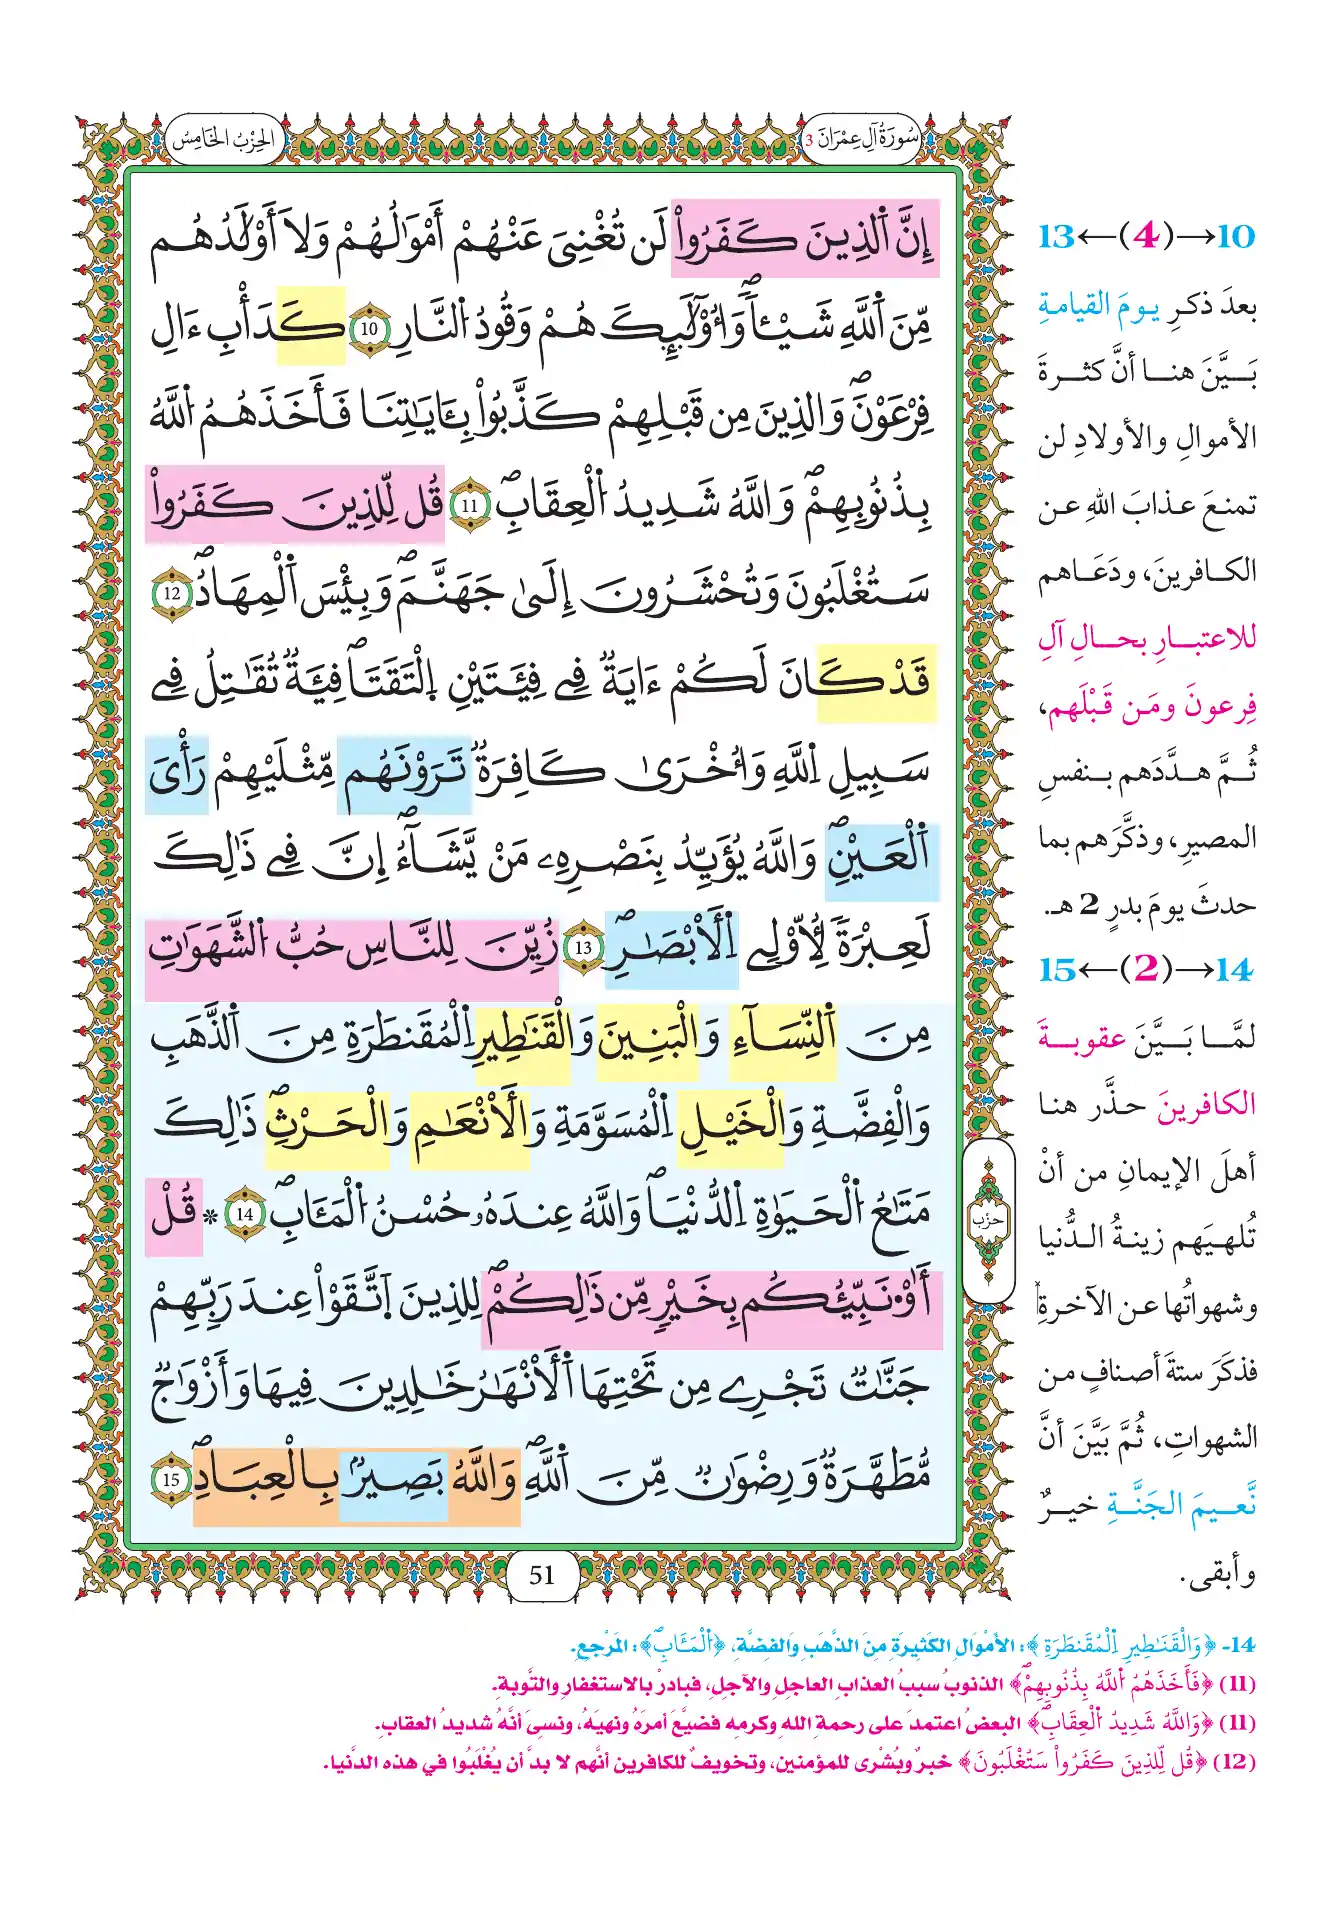 سُورَةُ آلِ عِمْرَانَ 3
الحِزْبُ الخَامِسُ
إِنَّ اَ۬لذِينَ كَفَرُواْ لَن تُغْنِيَ عَنْهُمُۥٓ أَمْوَٰلُهُمْ وَلَآ أَوْلَٰدُهُم
مِّنَ اَ۬للَّهِ شَيْـٔاٗۖ وَأُوْلَٰٓئِكَ هُمْ وَقُودُ اُ۬لنّ۪ارِ 10 كَدَأْبِ ءَالِ
فِرْعَوْنَۖ وَالذِينَ مِن قَبْلِهِمْ كَذَّبُواْ بِـَٔايَٰتِنَا فَأَخَذَهُمُ اُ۬للَّهُ
بِذُنُوبِهِمْۖ وَاللَّهُ شَدِيدُ اُ۬لْعِقَابِۖ 11 قُل لِّلذِينَ كَفَرُواْ
سَتُغْلَبُونَ وَتُحْشَرُونَ إِلَىٰ جَهَنَّمَۖ وَبِئْسَ اَ۬لْمِهَادُۖ 12
قَدْ كَانَ لَكُمُۥٓ ءَايَةٞ فِے فِئَتَيْنِ اِ۪لْتَقَتَاۖ فِئَةٞ تُقَٰتِلُ فِے
سَبِيلِ اِ۬للَّهِ وَأُخْرَىٰ كَافِرَةٞ تَرَوْنَهُم مِّثْلَيْهِمْ رَأْيَ
اَ۬لْعَيْنِۖ وَاللَّهُ يُؤَيِّدُ بِنَصْرِهِۦ مَنْ يَّشَآءُۖ اِنَّ فِے ذَٰلِكَ
لَعِبْرَةٗ لِّأُوْلِے اِ۬لْأَبْصَٰرِۖ 13 زُيِّنَ لِلنَّاسِ حُبُّ اُ۬لشَّهَوَٰتِ
مِنَ اَ۬لنِّسَآءِ وَالْبَنِينَ وَالْقَنَٰطِيرِ اِ۬لْمُقَنطَرَةِ مِنَ اَ۬لذَّهَبِ
وَالْفِضَّةِ وَالْخَيْلِ اِ۬لْمُسَوَّمَةِ وَالْأَنْعَٰمِ وَالْحَرْثِۖ ذَٰلِكَ
مَتَٰعُ اُ۬لْحَيَوٰةِ اِ۬لدُّنْيَاۖ وَاللَّهُ عِندَهُۥ حُسْنُ اُ۬لْمَـَٔابِۖ 14 * قُلْ
أَؤُنَبِّئُكُم بِخَيْرٖ مِّن ذَٰلِكُمْۖ لِلذِينَ اَ۪تَّقَوْاْ عِندَ رَبِّهِمْ
جَنَّٰتٞ تَجْرِے مِن تَحْتِهَا اَ۬لْأَنْهَٰرُ خَٰلِدِينَ فِيهَا وَأَزْوَٰجٞ
مُّطَهَّرَةٞ وَرِضْوَٰنٞ مِّنَ اَ۬للَّهِۖ وَاللَّهُ بَصِيرُۢ بِالْعِبَادِۖ 15
حزب
51
10→(4)←13
بعدَ ذكرِ يومَ القيامةِ
بَيَّنَ هنا أنَّ كثرةَ
الأموالِ والأولادِ لن
تمنعَ عذابَ اللهِ عن
الكافرينَ، ودَعَاهم
للاعتبارِ بحالِ آلِ
فِرعونَ ومَن قَبْلَهم،
ثُمَّ هدَّدَهم بنفسِ
المصيرِ، وذكَّرَهم بما
حدثَ يومَ بدرٍ 2 هـ.
14→(2)←15
لمَّا بَيَّنَ عقوبةَ
الكافرينَ حذَّر هنا
أهلَ الإيمانِ من أنْ
تُلهيَهم زينةُ الدُّنيا
وشهواتُها عن الآخرةِ،
فذكَرَ ستةَ أصنافٍ من
الشهواتِ، ثُمَّ بَيَّنَ أنَّ
نَّعيمَ الجَنَّةِ خيرٌ
وأبقى.
14- ﴿وَالْقَنَٰطِيرِ اِ۬لْمُقَنطَرَةِ﴾: الأمْوَالِ الكَثِيرَةِ مِنَ الذَّهَبِ وَالفِضَّةِ، ﴿اُ۬لْمَـَٔابِۖ﴾: المَرْجِعِ.
(11) ﴿فَأَخَذَهُمُ اُ۬للَّهُ بِذُنُوبِهِمْۖ﴾ الذنوبُ سببُ العذابِ العاجلِ والآجلِ، فبادرْ بالاستغفارِ والتَّوبةِ.
(11) ﴿وَاللَّهُ شَدِيدُ اُ۬لْعِقَابِۖ﴾ البعضُ اعتمدَ على رحمةِ اللهِ وكرمِه فضيَّعَ أمرَهُ ونهيَهُ، ونسيَ أنَّهُ شديدُ العقابِ.
(12) ﴿قُل لِّلذِينَ كَفَرُواْ سَتُغْلَبُونَ﴾ خبرٌ وبُشْرى للمؤمنين، وتخويفٌ للكافرين أنَّهم لا بدَّ أن يُغْلَبُوا في هذه الدَّنيا.